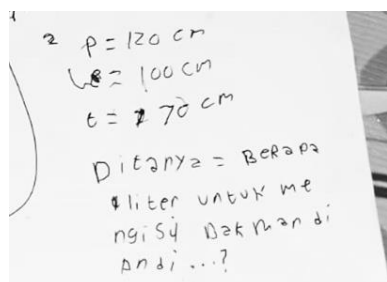 2 p = 120 cm
l = 100 cm
t = 70 cm
Ditanya = BeRapa
liter untuk me
ngisi Bak man di
Andi ...?